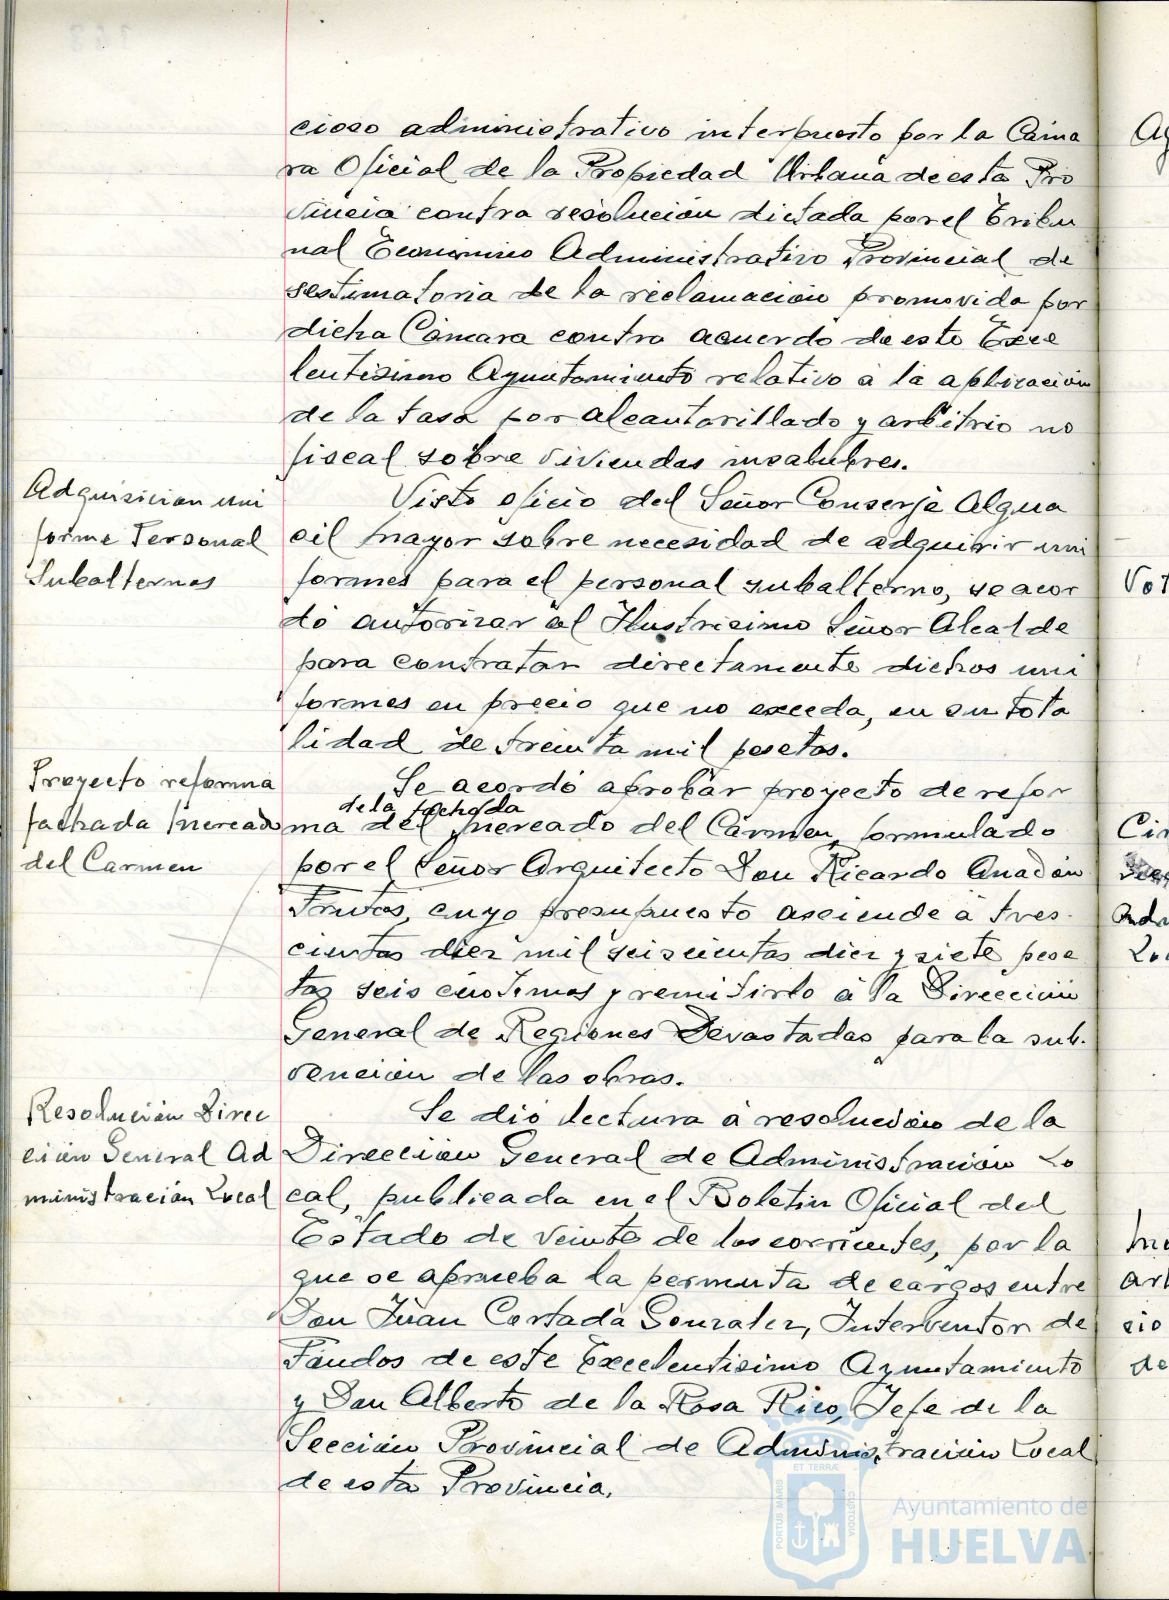 cioso administrativo interpuesto por la Cáma
ra Oficial de la Propiedad Urbana de esta Pro
vincia contra resolución dictada por el Tribu
nal Económico Administrativo Provincial de
sestimatoria de la reclamación promovida por
dicha Cámara contra acuerdo de este Exce
lentisimo Ayuntamiento relativo á la aplicación
de la tasa por alcantarillado y arbitrio no
fiscal sobre viviendas insalubres.
Adquisición uni
forme Personal
Subalternos
Visto oficio del Señor Conserje Algua
cil Mayor sobre necesidad de adquirir uni
formes para el personal subalterno, se acor
dó autorizar al Ilustrisimo Señor Alcalde
para contratar directamente dichos uni
formes en precio que no exceda, en su tota
lidad de treinta mil pesetas.
Proyecto reforma
fachada Mercado
del Carmen
Se acordó aprobar proyecto de refor
de la fachada
ma del Mercado del Carmen, formulado
por el Señor Arquitecto Don Ricardo Anadón
Frutos, cuyo presupuesto asciende á tres-
cientas diez mil seiscientas diez y siete pese
tas seis céntimos y remitirlo á la Dirección
General de Regiones Devastadas para la sub-
vención de las obras.
Resolución Direc
ción General Ad
ministración Local
Se dió lectura á resolución de la
Dirección General de Administración Lo
cal, publicada en el Boletin Oficial del
Estado de veinte de los corrientes, por la
que se aprueba la permuta de cargos entre
Don Juan Cortada Gonzalez, Interventor de
Fondos de este Excelentisimo Ayuntamiento
y Don Alberto de la Rosa Rico, Jefe de la
Sección Provincial de Administración Local
de esta Provincia.
ET TERRÆ
PORTUS MARIS
CUSTODIA
Ayuntamiento de
HUELVA